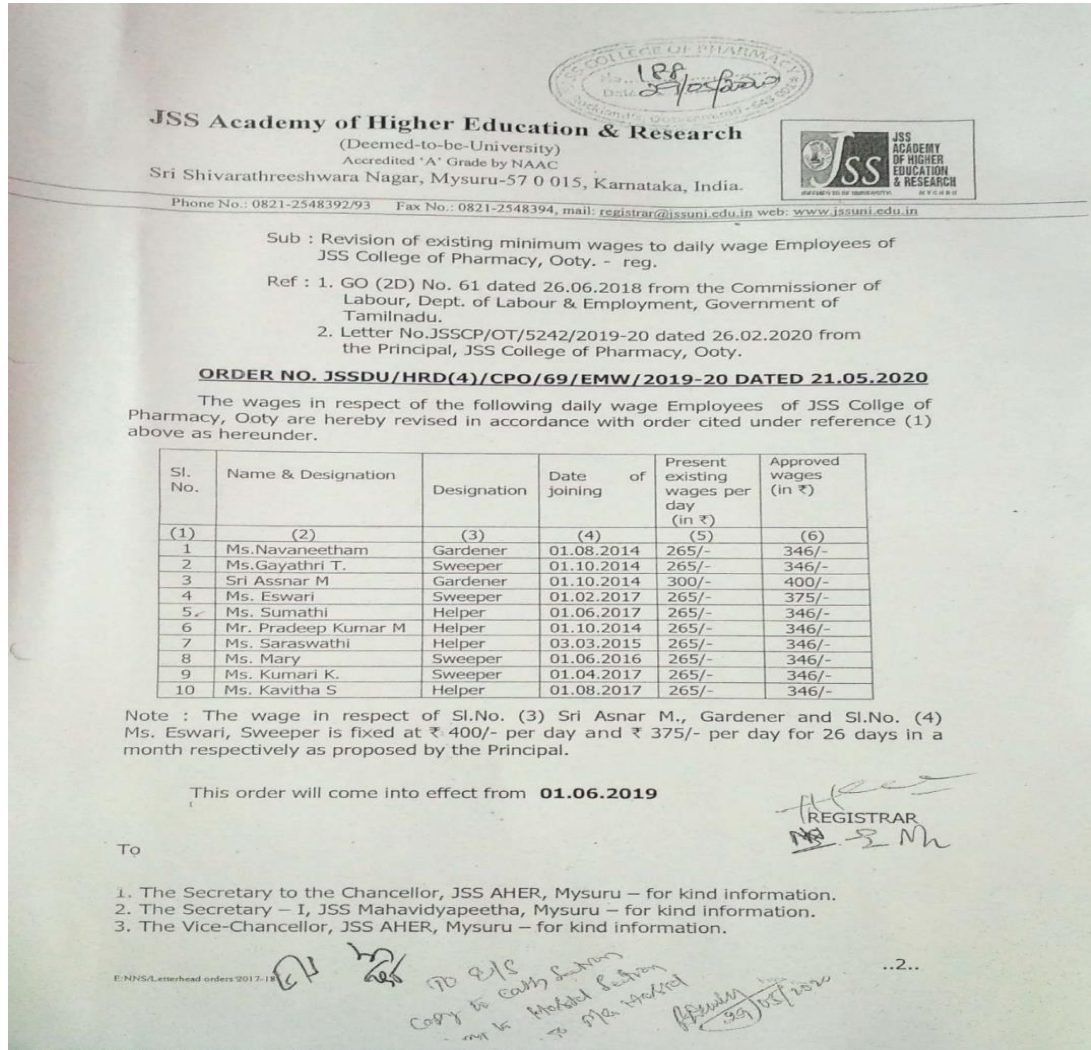 JSS COLLEGE OF PHARMACY
No. 188
Date 29/05/2020
JSS Academy of Higher Education & Research
(Deemed-to-be-University)
Accredited 'A' Grade by NAAC
Sri Shivarathreeshwara Nagar, Mysuru-57 0 015, Karnataka, India.
JSS
JSS
ACADEMY
OF HIGHER
EDUCATION
& RESEARCH
MYSURU
Phone No.: 0821-2548392/93 Fax No.: 0821-2548394, mail: registrar@jssuni.edu.in web: www.jssuni.edu.in
Sub : Revision of existing minimum wages to daily wage Employees of
JSS College of Pharmacy, Ooty. - reg.
Ref : 1. GO (2D) No. 61 dated 26.06.2018 from the Commissioner of
Labour, Dept. of Labour & Employment, Government of
Tamilnadu.
2. Letter No.JSSCP/OT/5242/2019-20 dated 26.02.2020 from
the Principal, JSS College of Pharmacy, Ooty.
ORDER NO. JSSDU/HRD(4)/CPO/69/EMW/2019-20 DATED 21.05.2020
The wages in respect of the following daily wage Employees of JSS Collge of
Pharmacy, Ooty are hereby revised in accordance with order cited under reference (1)
above as hereunder.
Sl. No. Name & Designation Designation Date of joining Present existing wages per day (in ₹) Approved wages (in ₹)
(1) (2) (3) (4) (5) (6)
1 Ms.Navaneetham Gardener 01.08.2014 265/- 346/-
2 Ms.Gayathri T. Sweeper 01.10.2014 265/- 346/-
3 Sri Assnar M Gardener 01.10.2014 300/- 400/-
4 Ms. Eswari Sweeper 01.02.2017 265/- 375/-
5 Ms. Sumathi Helper 01.06.2017 265/- 346/-
6 Mr. Pradeep Kumar M Helper 01.10.2014 265/- 346/-
7 Ms. Saraswathi Helper 03.03.2015 265/- 346/-
8 Ms. Mary Sweeper 01.06.2016 265/- 346/-
9 Ms. Kumari K. Sweeper 01.04.2017 265/- 346/-
10 Ms. Kavitha S Helper 01.08.2017 265/- 346/-
Note : The wage in respect of Sl.No. (3) Sri Asnar M., Gardener and Sl.No. (4)
Ms. Eswari, Sweeper is fixed at ₹ 400/- per day and ₹ 375/- per day for 26 days in a
month respectively as proposed by the Principal.
This order will come into effect from 01.06.2019
REGISTRAR
To
1. The Secretary to the Chancellor, JSS AHER, Mysuru – for kind information.
2. The Secretary – I, JSS Mahavidyapeetha, Mysuru – for kind information.
3. The Vice-Chancellor, JSS AHER, Mysuru – for kind information.
..2..
F:NNS/Letterhead orders 2017-18
Copy to Section
to Hostel Section
29/05/2020